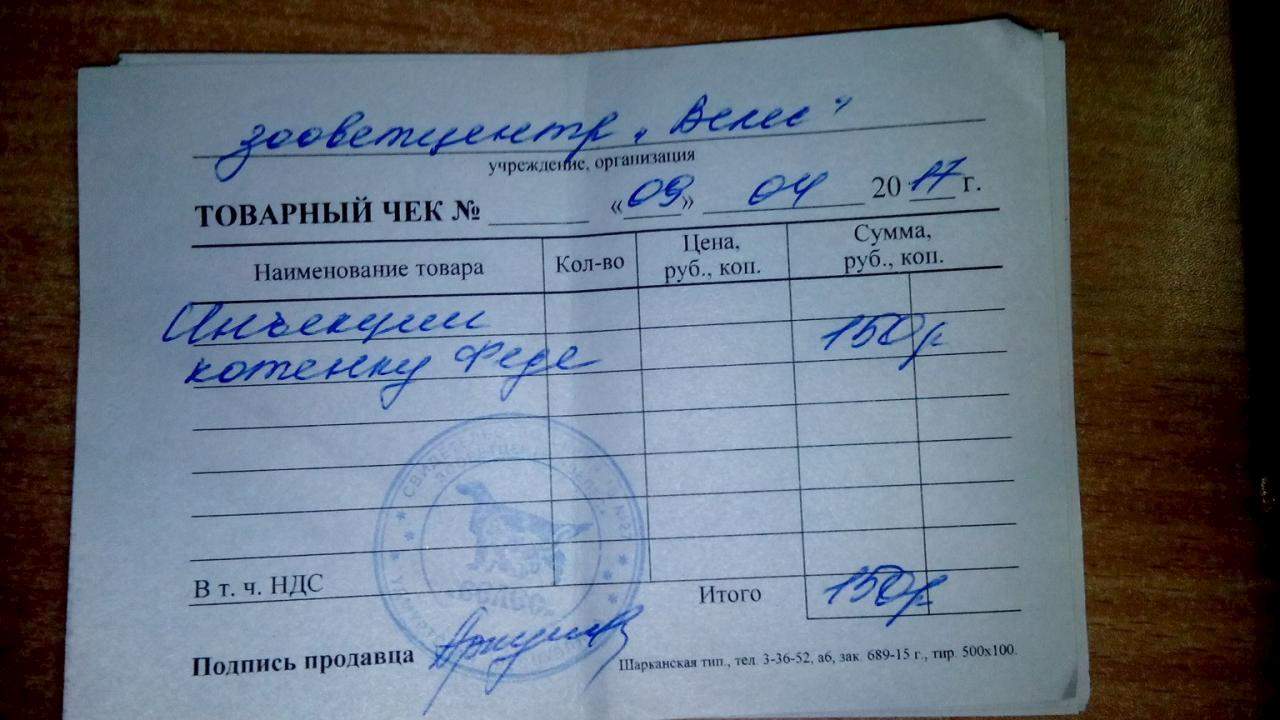 зооветцентр „Велес"
учреждение, организация
ТОВАРНЫЙ ЧЕК № «09» 04 2017 г.
Наименование товара Кол-во Цена, руб., коп. Сумма, руб., коп.
Инъекции
котенку Феде 150р
В т. ч. НДС Итого 150р
Подпись продавца
Шарканская тип., тел. 3-36-52, а6, зак. 689-15 г., тир. 500х100.